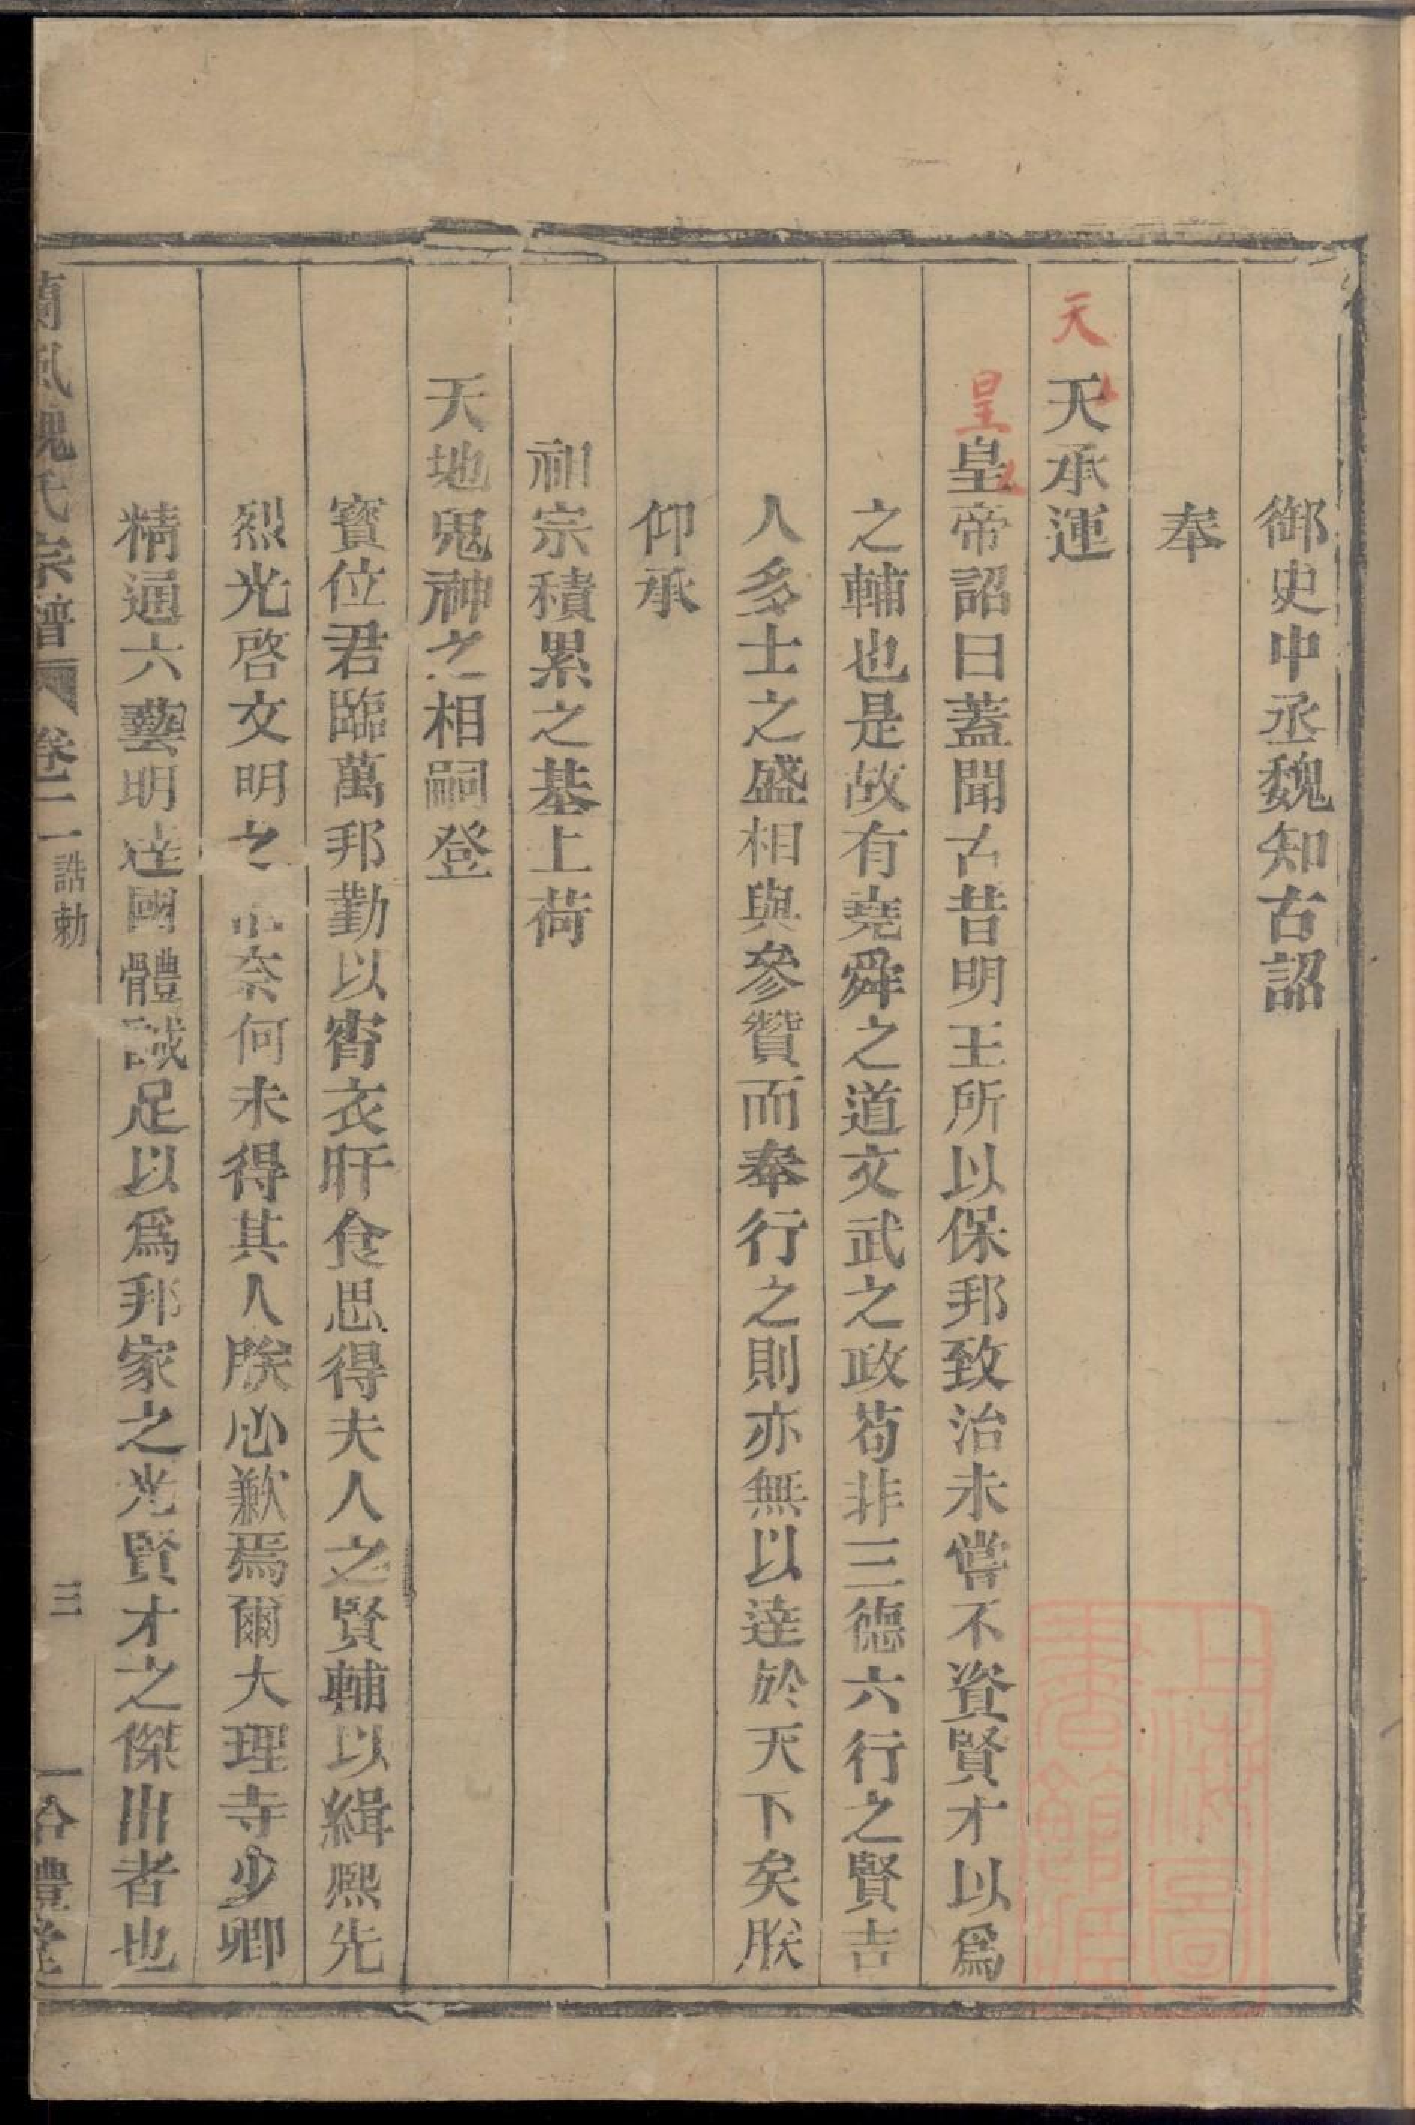 御史中丞魏知古詔
奉
天
天承運
皇
皇帝詔曰蓋聞古昔明王所以保邦致治未嘗不資賢才以爲
之輔也是故有堯舜之道文武之政苟非三德六行之賢吉
人多士之盛相與參贊而奉行之則亦無以達於天下矣朕
仰承
祖宗積累之基上荷
天地鬼神之相嗣登
寶位君臨萬邦勤以宵衣肝食思得夫人之賢輔以緝熙先
烈光啓文明之 奈何未得其人朕心歉焉爾大理寺少卿
精通六藝明達國體誠足以爲邦家之光賢才之傑出者也
蘭風魏氏宗譜 卷二 誥勅 三 一合禮堂
上海圖書館藏